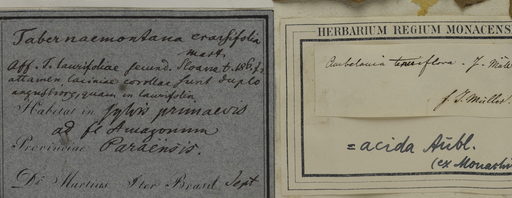 Tabernaemontana crassifolia
Mart.
Aff. T. laurifoliae secund. Sloane t. 186. f. 2
attamen laciniae corollae sunt duplo
angustiores, quam in laurifolia
Habitat in Sylvis primaevis
ad fl. Amazonum
Provinciae Paraënsis.
Dr. Martius Iter Brasil. Sept
HERBARIUM REGIUM MONACENS
Ambelania tenuiflora. J. Müll
J. Müller.
= acida Aubl.
(ex Monachi